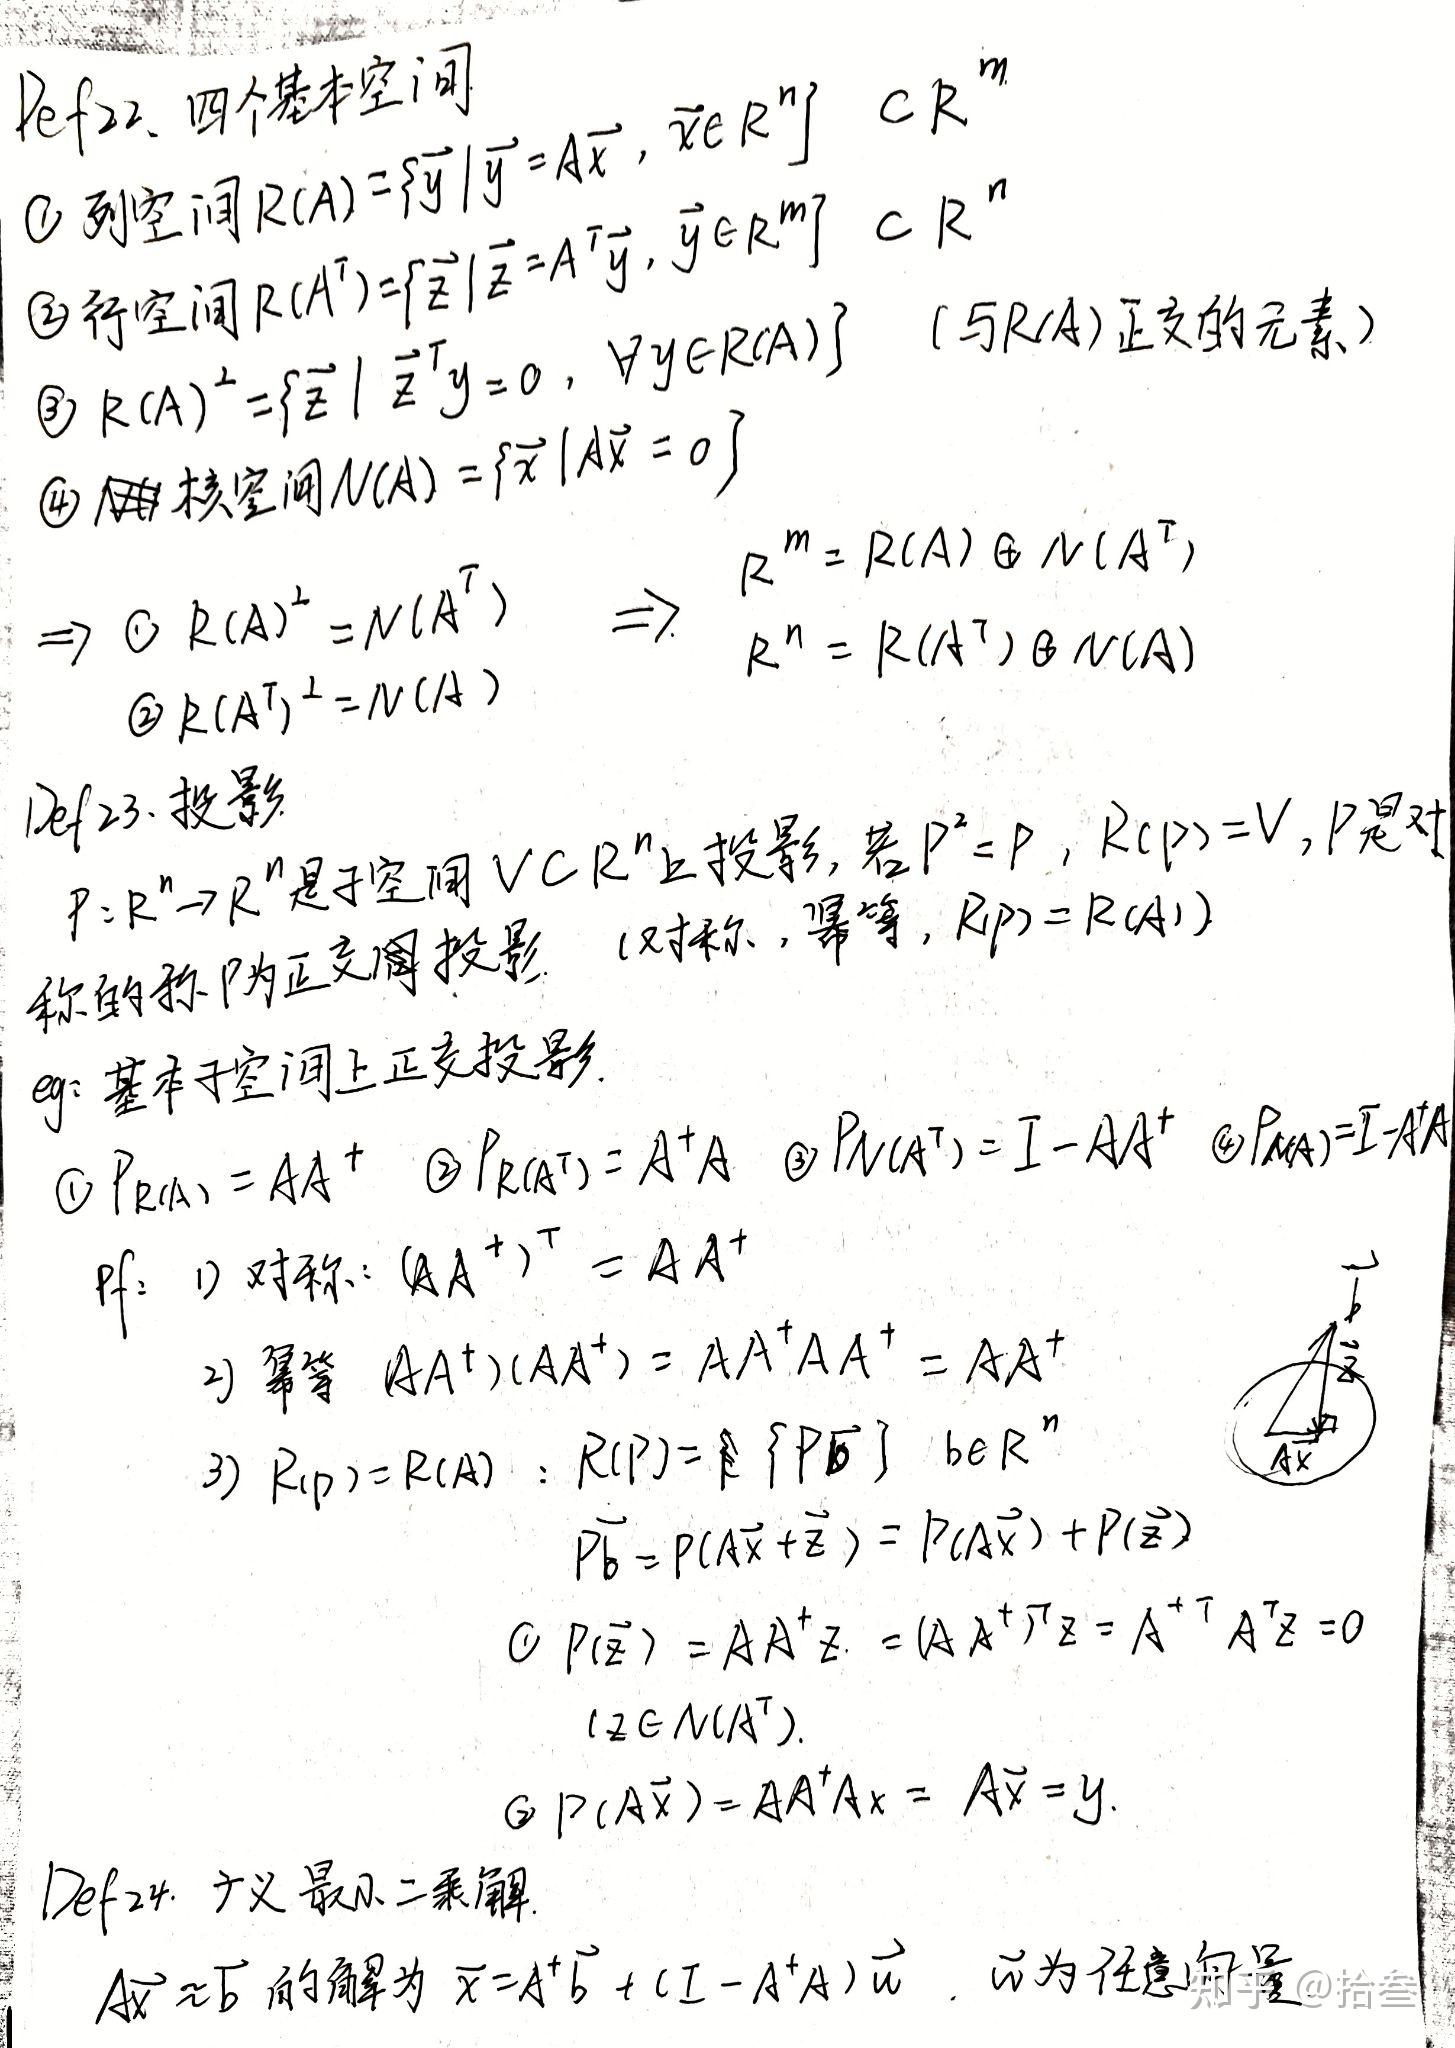 Def22、四个基本空间
① 列空间R(A)={y⃗|y⃗=Ax⃗, x⃗∈Rⁿ} ⊂Rᵐ
② 行空间R(Aᵀ)={z⃗|z⃗=Aᵀy⃗, y⃗∈Rᵐ} ⊂Rⁿ
③ R(A)^⊥={z⃗| z⃗ᵀy=0, ∀y∈R(A)} (与R(A)正交的元素)
④ 核空间N(A)={x⃗|Ax⃗=0}
⇒ ① R(A)^⊥=N(Aᵀ) ⇒ Rᵐ=R(A)⊕N(Aᵀ)
② R(Aᵀ)^⊥=N(A) Rⁿ=R(Aᵀ)⊕N(A)
Def23.投影
P:Rⁿ→Rⁿ是子空间V⊂Rⁿ上投影,若P²=P, R(P)=V, P是对
称的称P为正交投影. (对称,幂等,R(P)=R(A))
eg:基本子空间上正交投影.
① P_R(A)=AA⁺ ② P_R(Aᵀ)=A⁺A ③ P_N(Aᵀ)=I-AA⁺ ④ P_N(A)=I-A⁺A
Pf: 1) 对称:(AA⁺)ᵀ=AA⁺
b⃗
2) 幂等 (AA⁺)(AA⁺)=AA⁺AA⁺=AA⁺
z⃗
3) R(P)=R(A):R(P)={Pb⃗} b∈Rⁿ
Ax⃗
Pb⃗=P(Ax⃗+z⃗)=P(Ax⃗)+P(z⃗)
① P(z⃗)=AA⁺z.=(AA⁺)ᵀz=A⁺ᵀAᵀz=0
(z∈N(Aᵀ).
② P(Ax⃗)=AA⁺Ax=Ax⃗=y.
Def24.广义最小二乘解.
Ax⃗≈b⃗的解为x⃗=A⁺b⃗+(I-A⁺A)w⃗.w⃗为任意向量
知乎 @拾叁